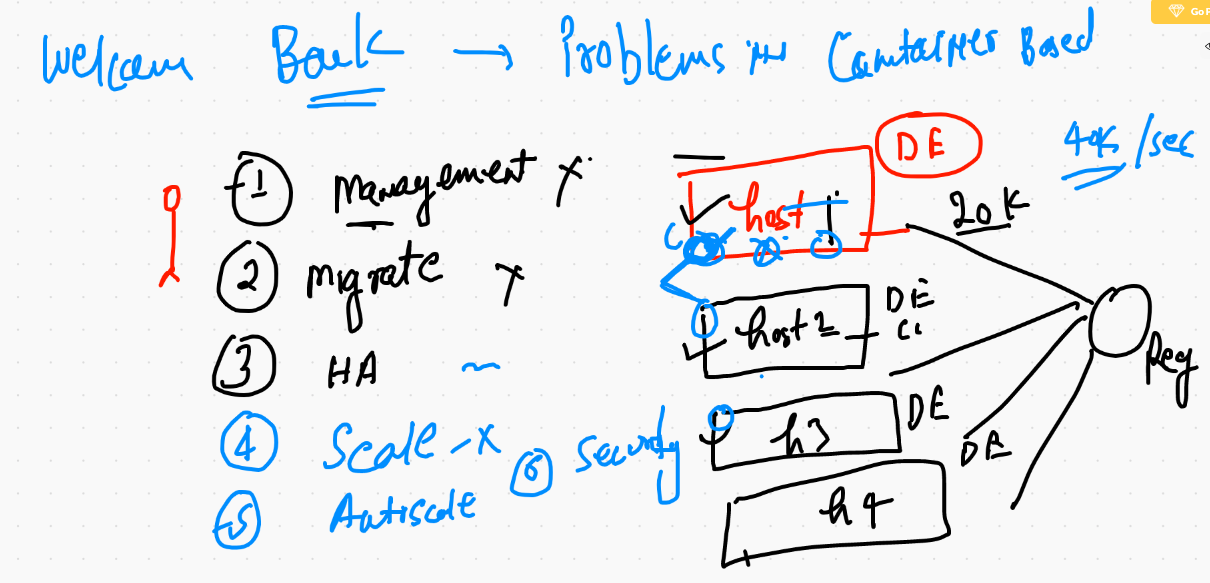 Welcom Back → Problems in Container Based
1 Management x
2 migrate x
3 HA ~
4 Scale - x
5 Autoscale
6 Security
DE
host 1
40K/sec
20K
C
DE
host 2
h3
DE
DE
h4
Reg
Go P